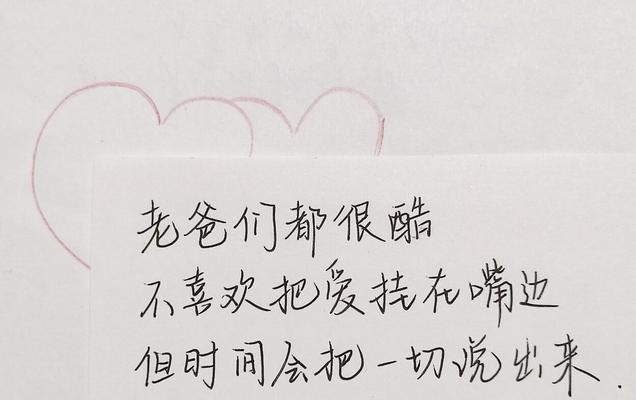 老爸们都很酷
不喜欢把爱挂在嘴边
但时间会把一切说出来.